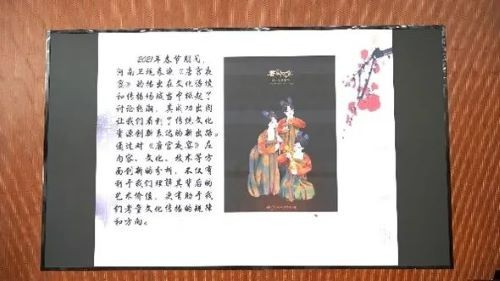 2021年春节期间，
河南卫视春晚《唐宫夜
宴》的播出在文化活动
和传播场域当中掀起了
讨论热潮，其成功出圈
让我们看到了传统文化
资源创新表达的新出路。
通过对《唐宫夜宴》在
内容、文化、技术等方
面创新的分析，不仅有
利于我们理解其背后的
艺术价值，更有助于我
们考量文化传播的规律
和方向。